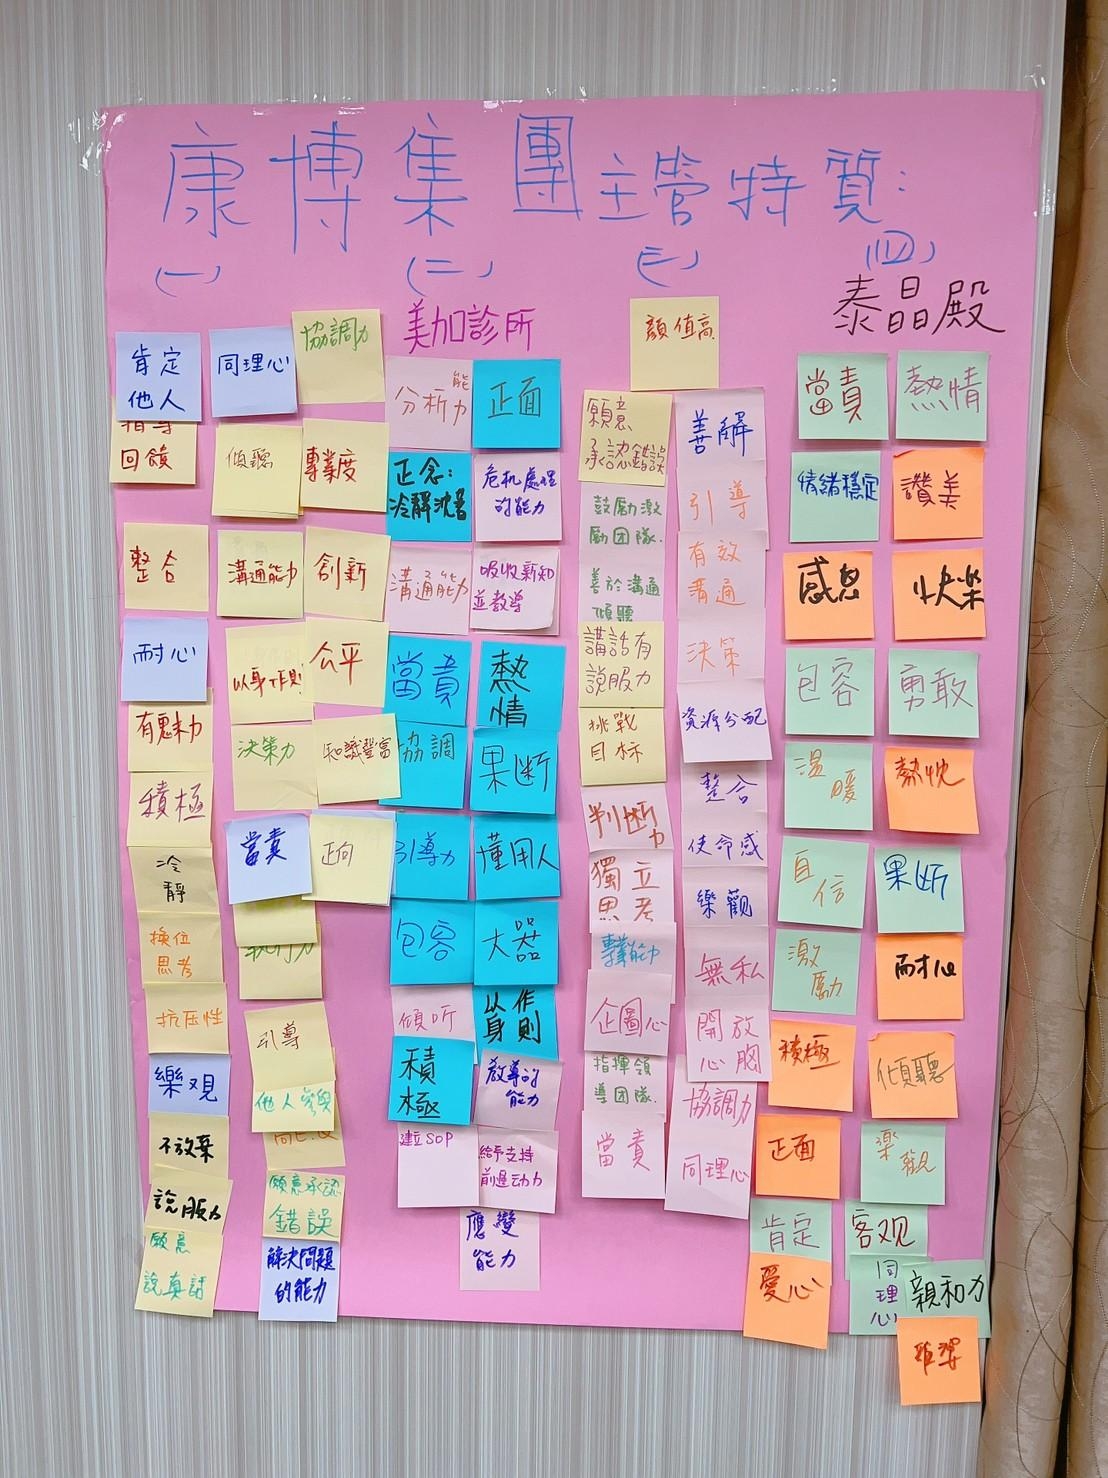 康博集團主管特質:
(一)
(二)
(三)
(四)
美加診所
泰晶殿
肯定
他人
回饋
整合
耐心
有魅力
積極
冷
靜
換位
思考
抗压性
樂观
不放棄
說服力
願意
說真話
同理心
傾聽
溝通能力
以身作則
決策力
當責
執行力
引導
他人參與
同心
願意承認
錯誤
解決問題
的能力
協調力
專業度
創新
公平
知識豐富
正向
分析能力
正念:
冷解沈著
溝通能力
當責
協調
引導力
包容
傾听
積
極
建立SOP
正面
危机處理
的能力
吸收新知
並教導
熱
情
果断
懂用人
大器
以身作則
教導的
能力
給予支持
前進动力
應變
能力
顏值高
願意
承認錯誤
鼓励激
励团隊.
善於溝通
傾聽
講話有
說服力
挑戰
目标
判断力
獨立
思考
專業能力
企圖心
指揮領
導团隊.
當責
善解
引導
有效
溝通
決策
資源分配
整合
使命感
樂觀
無私
開放
心胸
協調力
同理心
當責
情緒穩定
感恩
包容
溫
暖
自
信
激
勵
積極
正面
肯定
愛心
熱情
讚美
快樂
勇敢
熱忱
果断
耐心
傾聽
樂
觀
客观
同
理
心
親和力